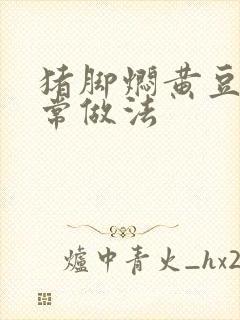 猪脚焖黄豆
常做法
爐中青火_hx2